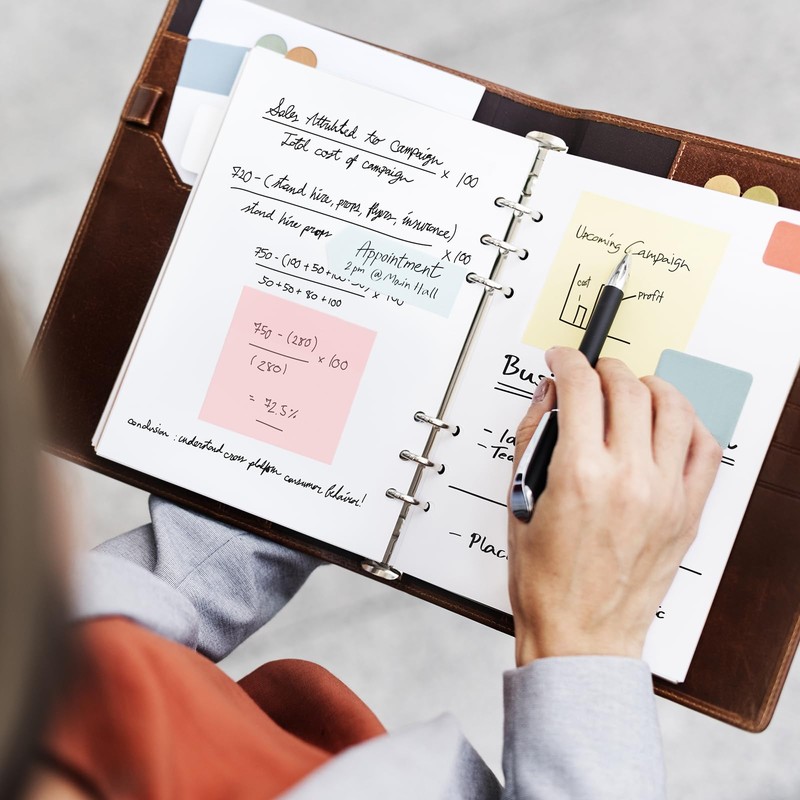 Sales Attributed to Campaign
Total cost of campaign x 100
720 - (stand hire, props, flyers, insurance)
stand hire props x100
Appointment
2pm @ Main Hall
750 - (100 + 50 + x 100
50 + 50 + 80 + 100
750 - (280) x 100
(280)
= 72.5%
conclusion : understand cross platform consumer behavior!
Upcoming Campaign
cost
profit